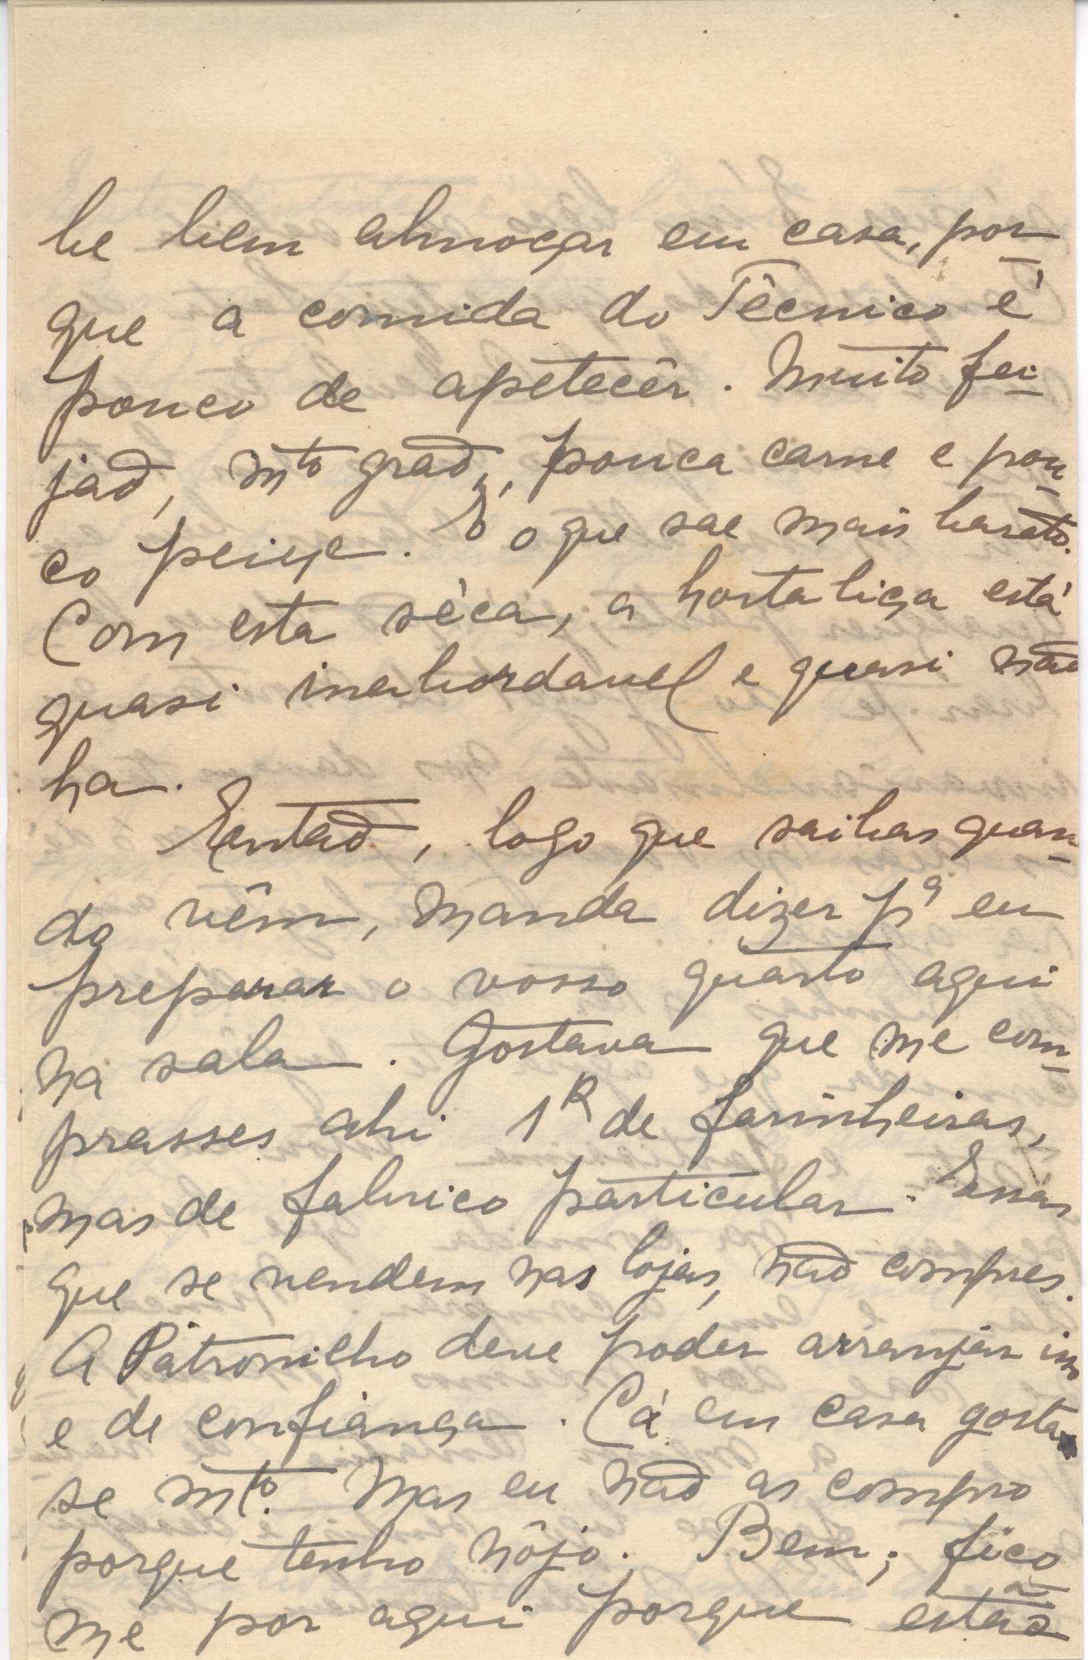 be bem almoçar em casa, por-
que a comida do Técnico é
pouco de apetecêr. Muito fei-
jão, mto grão, pouca carne e pou-
co peixe. É o que sae mais barato.
Com esta sêca, a hortaliça está
quasi inabordavel e quasi não
ha.
Então, logo que saibas quan-
do vêm, manda dizer pª eu
preparar o vosso quarto aqui
na sala. Gostava que me com-
prasses ahi 1K de farinheiras,
mas de fabrico particular. Essas
que se vendem nas lojas, não compres.
A Patronilho deve poder arranjar isso
e de confiança. Cá em casa gosta-
se mto. Mas eu não as compro
porque tenho nôjo. Bem; fico-
me por aqui porque estão